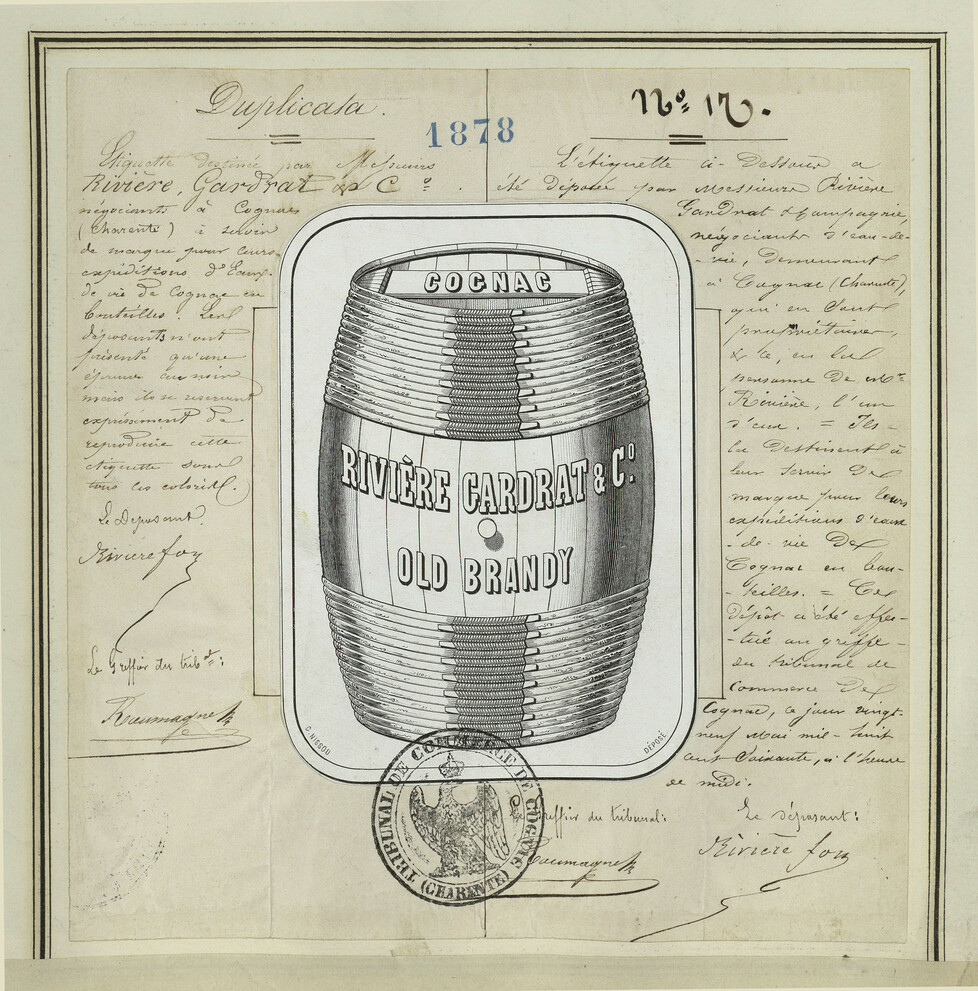 Duplicata.
No. 17.
1878
Etiquette destinée par Messieurs
Rivière, Gardrat & Co.
négociants à Cognac
(Charente) à servir
de marque pour leurs
expéditions d'Eaux-
de vie de Cognac en
bouteilles. Les
déposants n'ont
présenté qu'une
épreuve en noir
mais ils se réservent
expressément de
reproduire cette
étiquette sous
tous les coloris.
Le Déposant.
Rivière
Le Greffier du tribal:
L'étiquette ci-Dessous a
été Déposée par Messieurs Rivière
Gardrat & Compagnie,
négociants d'eau-de-
-vie, Demeurant
à Cognac (Charente),
qui en sont
propriétaires,
& ce, en la
personne De Mr.
Rivière, l'un
d'eux. = Ils
la Destinent à
leur servir De
marque pour leurs
expéditions d'eaux
-de-vie De
Cognac en bou-
-teilles. = Ce
Dépôt a été effec-
-tué au greffe
du tribunal de
Commerce De
Cognac, ce jour vingt-
neuf Mai mil-huit
cent soixante, à l'heure
de midi.
COGNAC
RIVIÈRE GARDRAT & Co.
OLD BRANDY
C. NISSOU
DÉPOSÉ
TRIBUNAL DE COMMERCE DE COGNAC
(CHARENTE)
Le Greffier du tribunal:
Le déposant:
Rivière